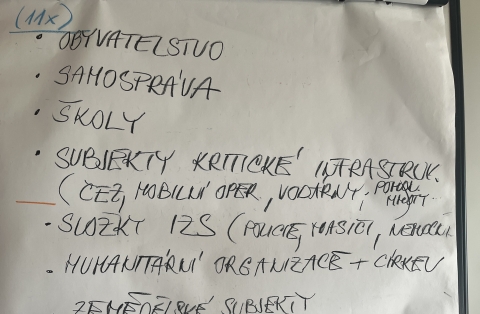 (11x)
• OBYVATELSTVO
• SAMOSPRÁVA
• ŠKOLY
• SUBJEKTY KRITICKÉ INFRASTRUK.
(ČEZ, MOBILNÍ OPER, VODÁRNY, POHON. HMOTY)
• SLOŽKY IZS (POLICIE, HASIČI, NEMOCN
• HUMANITÁRNÍ ORGANIZACE + CÍRKEV
ZEMĚDĚLSKÉ SUBJEKTY